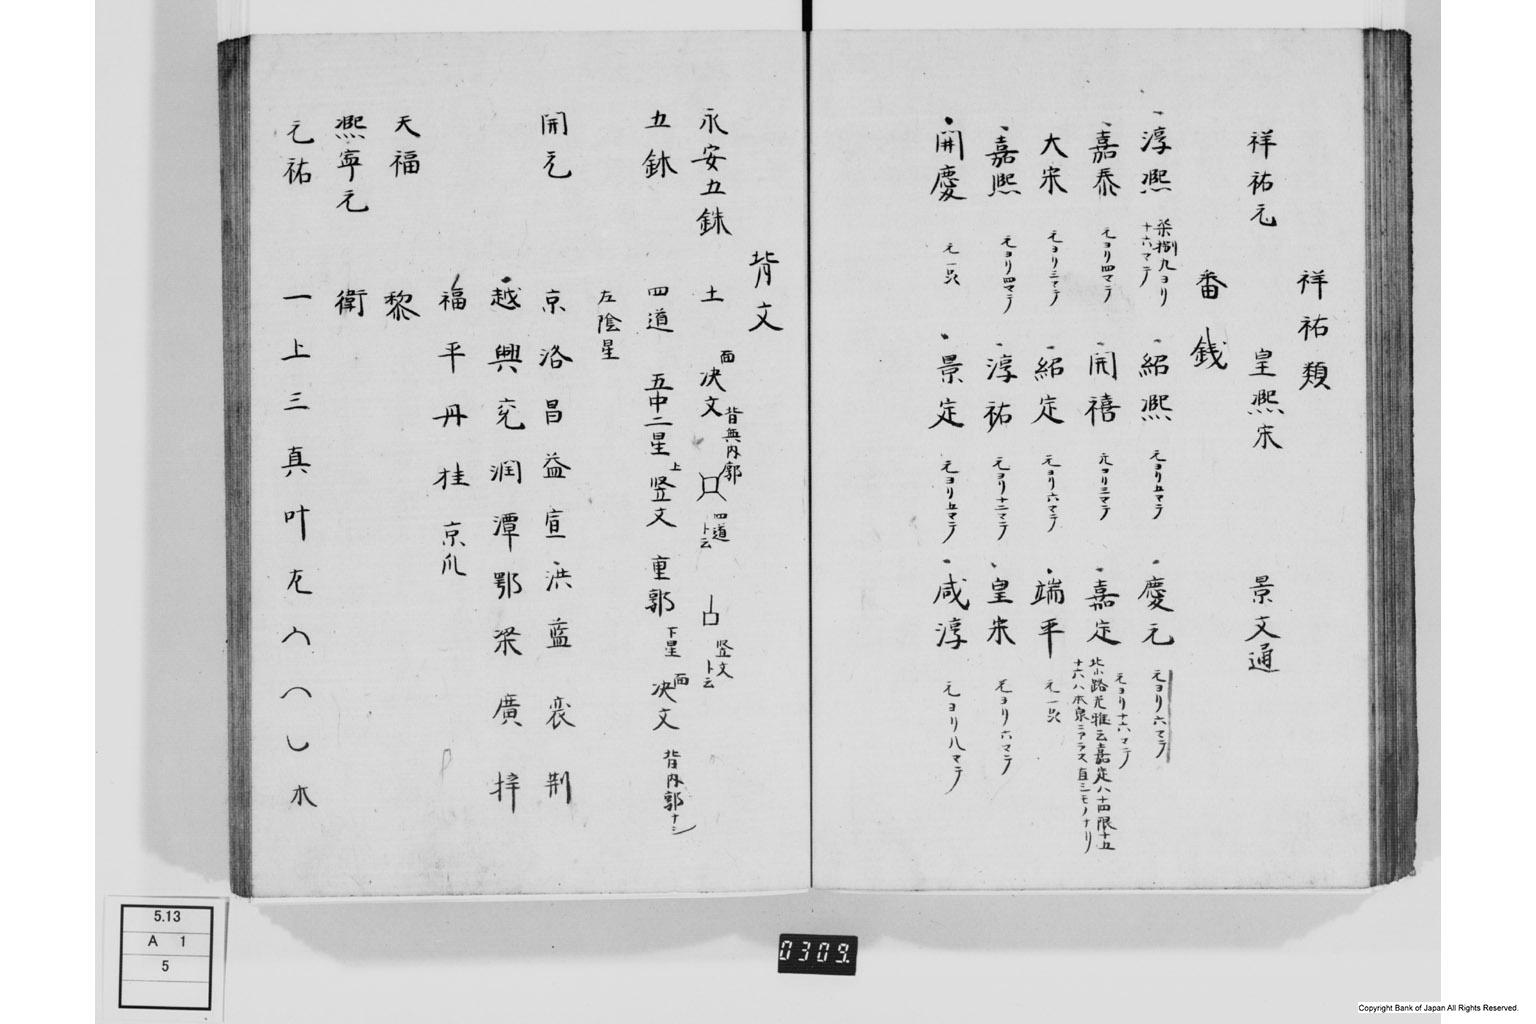 祥祐類
祥祐元 皇熈宋 景文通
番銭
淳熈 柒捌九ヨリ十六マテ 紹熈 元ヨリ五マテ 慶元 元ヨリ六マテ
嘉泰 元ヨリ四マテ 開禧 元ヨリ三マテ 嘉定 元ヨリ十六マテ
大宋 元ヨリ三マテ 紹定 元ヨリ六マテ 端平 元一品
嘉熈 元ヨリ四マテ 淳祐 元ヨリ十二マテ 皇宋 元ヨリ六マテ
開慶 元一品 景定 元ヨリ五マテ 咸淳 元ヨリ八マテ
背文
永安五銖 土 面決文 背無内郭 四道ト云 竪文ト云
五銖 四道 五中二星 上竪文 重郭 下星 面決文 背内郭ナシ
左陰星
開元 京洛昌益宣洪藍襄荊
越興兗潤潭鄂梁廣梓
福平丹桂 京爪
天福 黎
熈寧元 衛
元祐 一上三真叶
5.13
A 1
5
0309.
Copyright Bank of Japan All Rights Reserved.